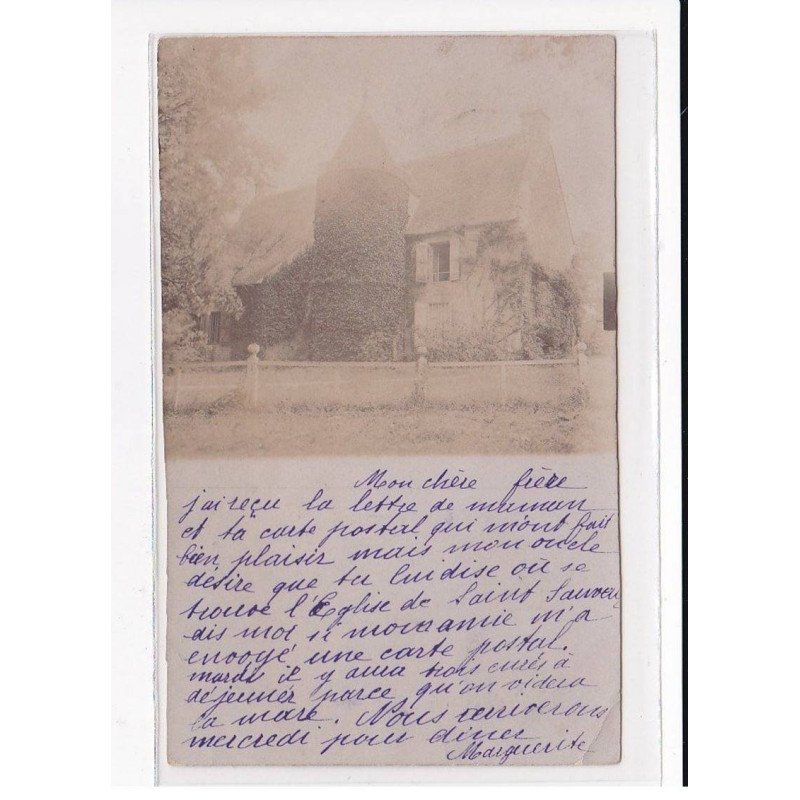 Mon chère frère
j'ai reçu la lettre de maman
et ta carte postal qui m'ont fait
bien plaisir mais mon oncle
désire que tu lui dise où se
trouve l'Eglise de Saint Sauveur
dis moi si mon amie m'a
envoyé une carte postal.
mardi il y aura trois curés à
déjeuner parce qu'on videra
la mare. Nous arriverons
mercredi pour diner
Marguerite